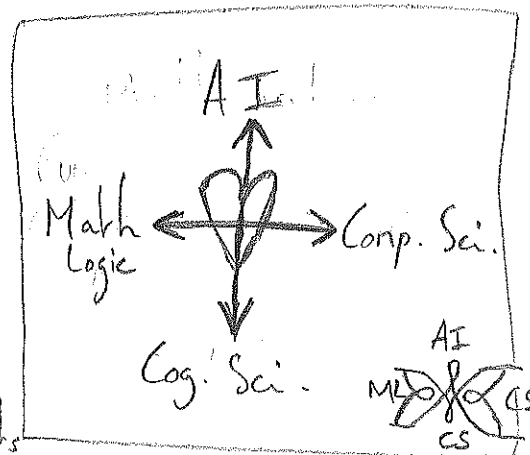 AI
Math
Logic
Comp. Sci.
Cog. Sci.
AI
ML
CS
CS